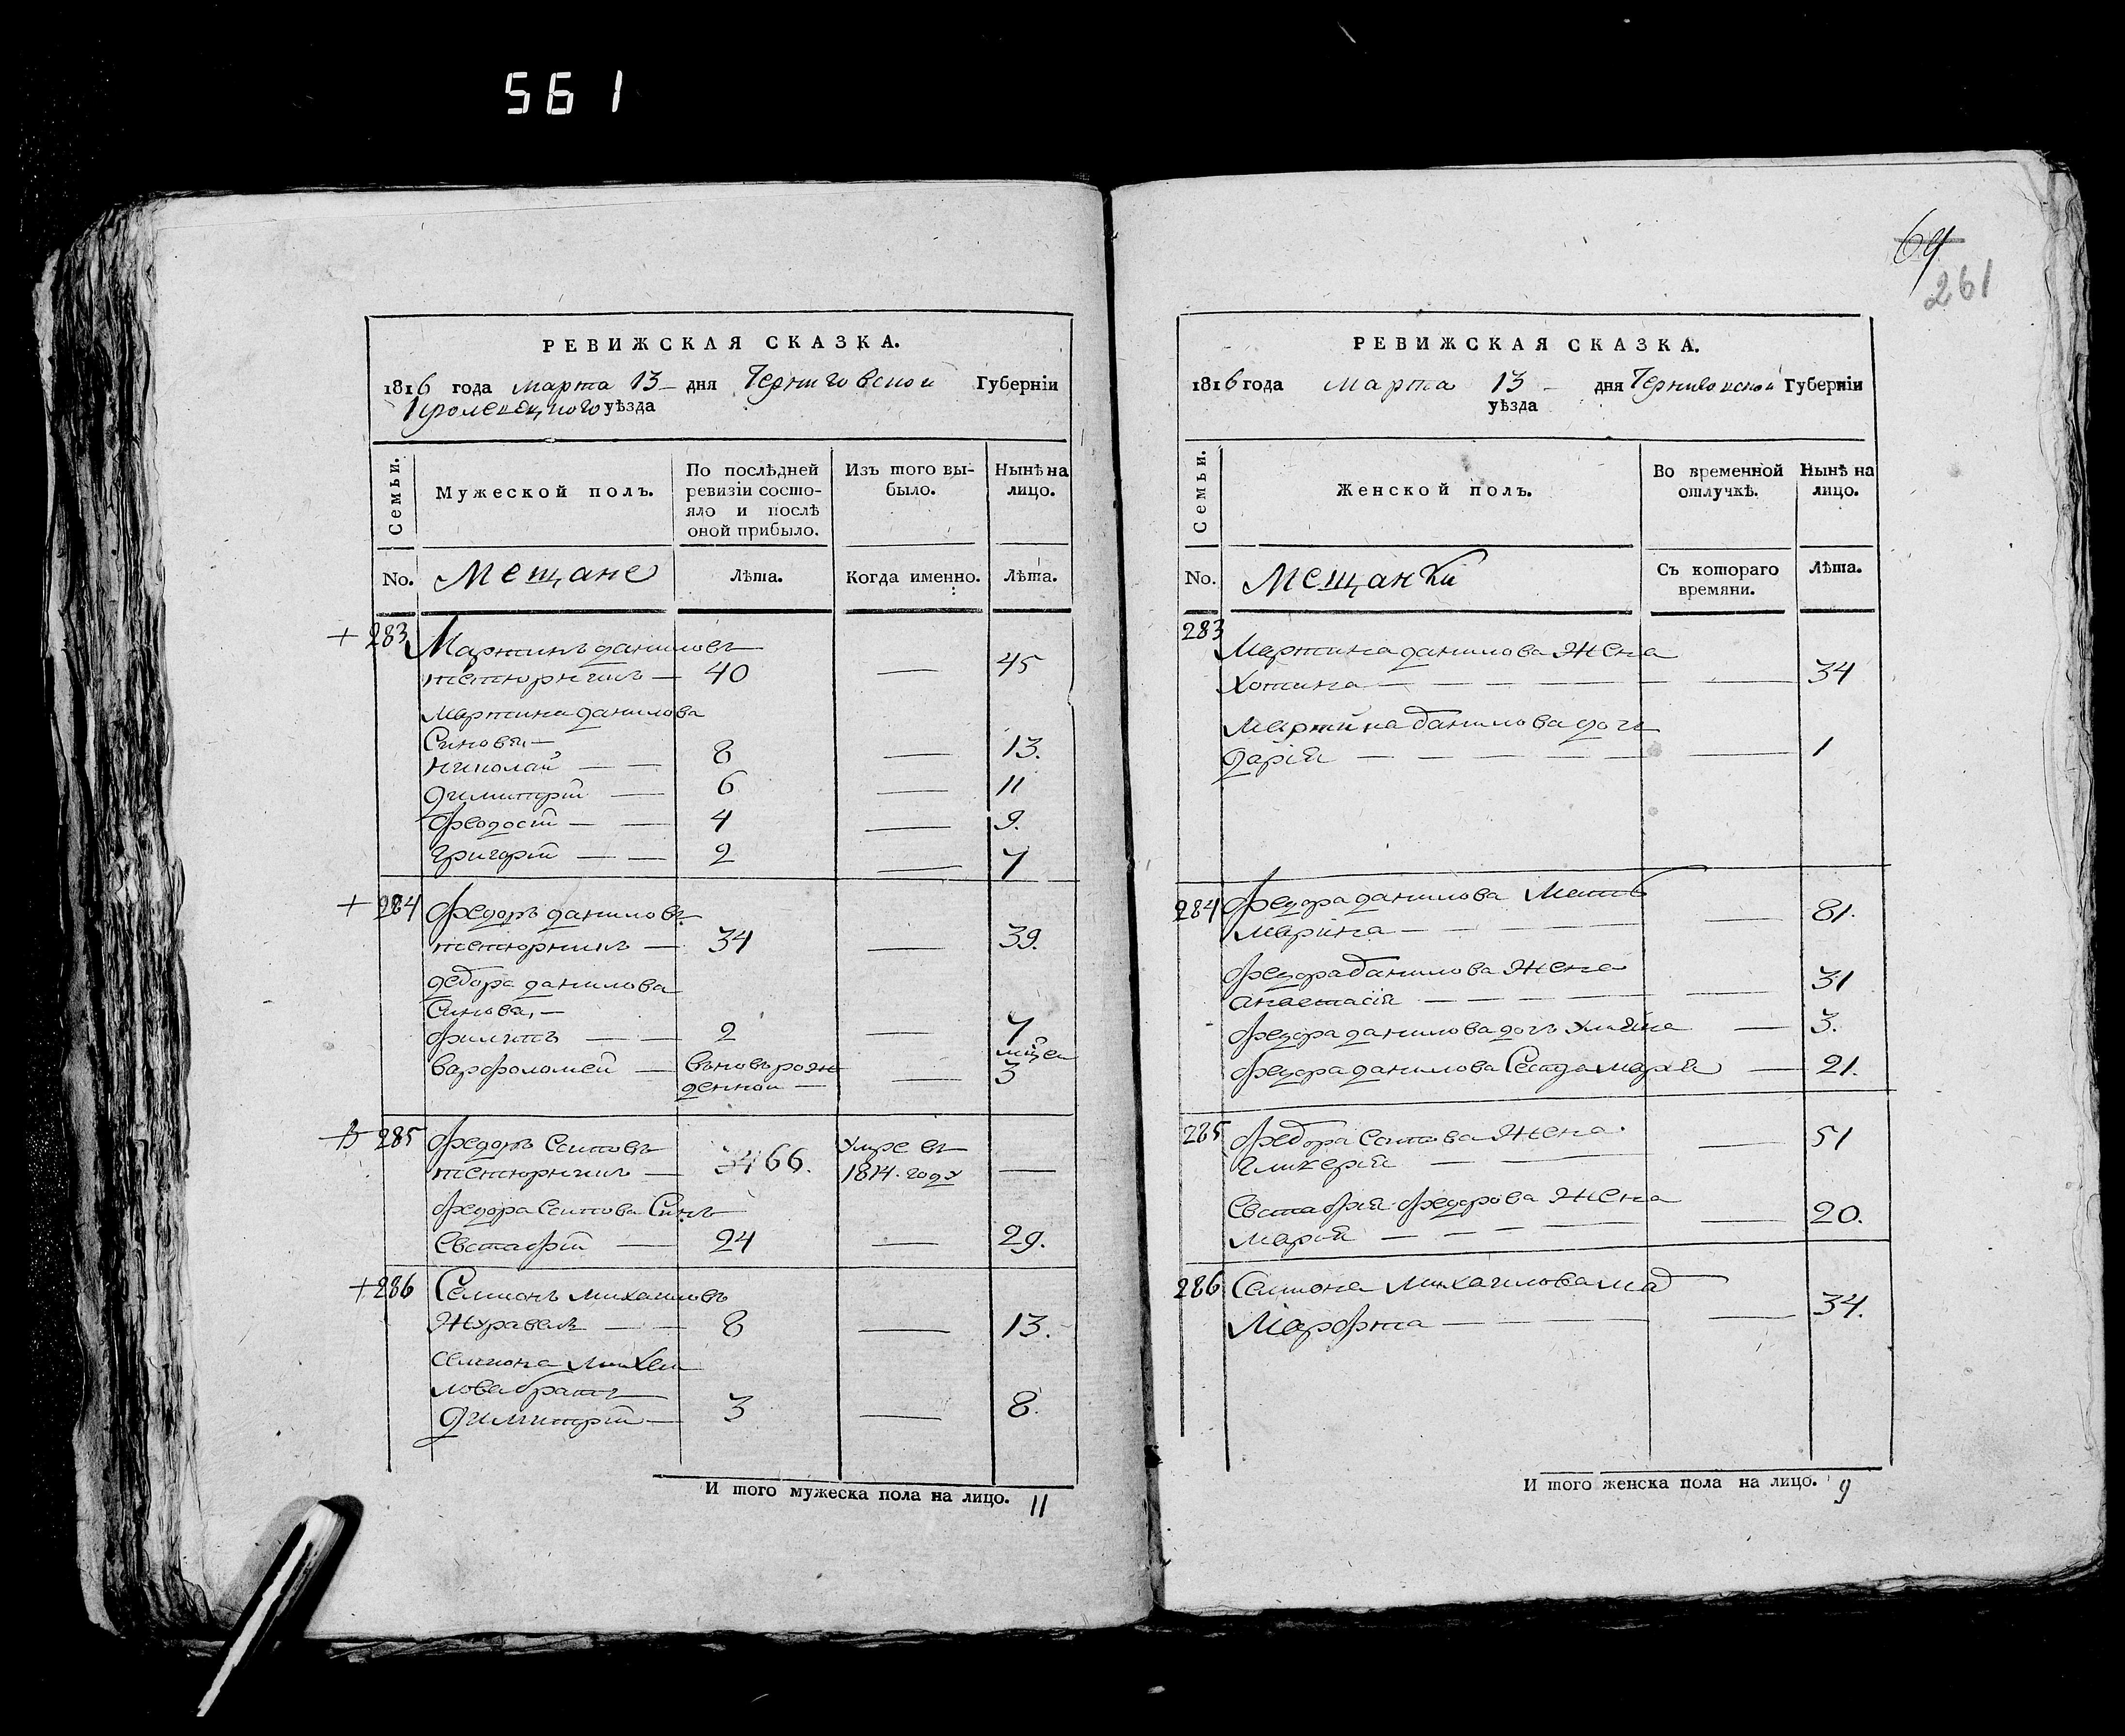 561
64
261
РЕВИЖСКАЯ СКАЗКА.
1816 года марта 13 дня Черниговской Губерніи
Кролевецкого уѣзда
Семьи.
Мужеской полъ.
По послѣдней ревизіи состо-
яло и послѣ
оной прибыло.
Изъ того вы-
было.
Нынѣ на
лицо.
No. Мещане Лѣта. Когда именно. Лѣта.
+ 283 Мартинъ даниловъ
— 40 — 45
Мартина данилова
Синовя —
николай — — 8 — 13.
димитрій — 6 — 11
феодосій — — 4 — 9.
григорій — — 2 — 7
+ 284 Федоръ даниловъ
— 34 — 39.
федора данилова
Синовя, —
филипъ — — 2 — 7
варфоломей — вьновьрож
денной — — мцеи 3
285 Федоръ
— 66. Умре въ
1814. году —
федора Синъ
Євстафій — 24 — 29.
+ 286 Семионъ михаиловъ
Журавель — — 8 — 13.
семиона михаи
лова братъ
димитрій — 3 — 8.
И того мужеска пола на лицо. 11
РЕВИЖСКАЯ СКАЗКА.
1816 года марта 13 — дня Черниговской Губерніи
уѣзда
Семьи.
Женской полъ.
Во временной
отлучкѣ.
Нынѣ на
лицо.
No. Мещанки Съ котораго
времяни. Лѣта.
283 Мартина данилова Жена
— — — — — 34
Мартина данилова дочь
дарія — — — — — 1
284 Федора данилова Мать
марина — — — — 81.
федора данилова Жена
анастасія — — — — 31
федора данилова дочь — 3.
федора данилова марія — 21.
285 федора Жена
гликерія — — — 51
Євстафія федорова Жена
марія — — — — 20.
286 Семиона михаилова мат
Марфта — — — — — 34.
И того женска пола на лицо. 9